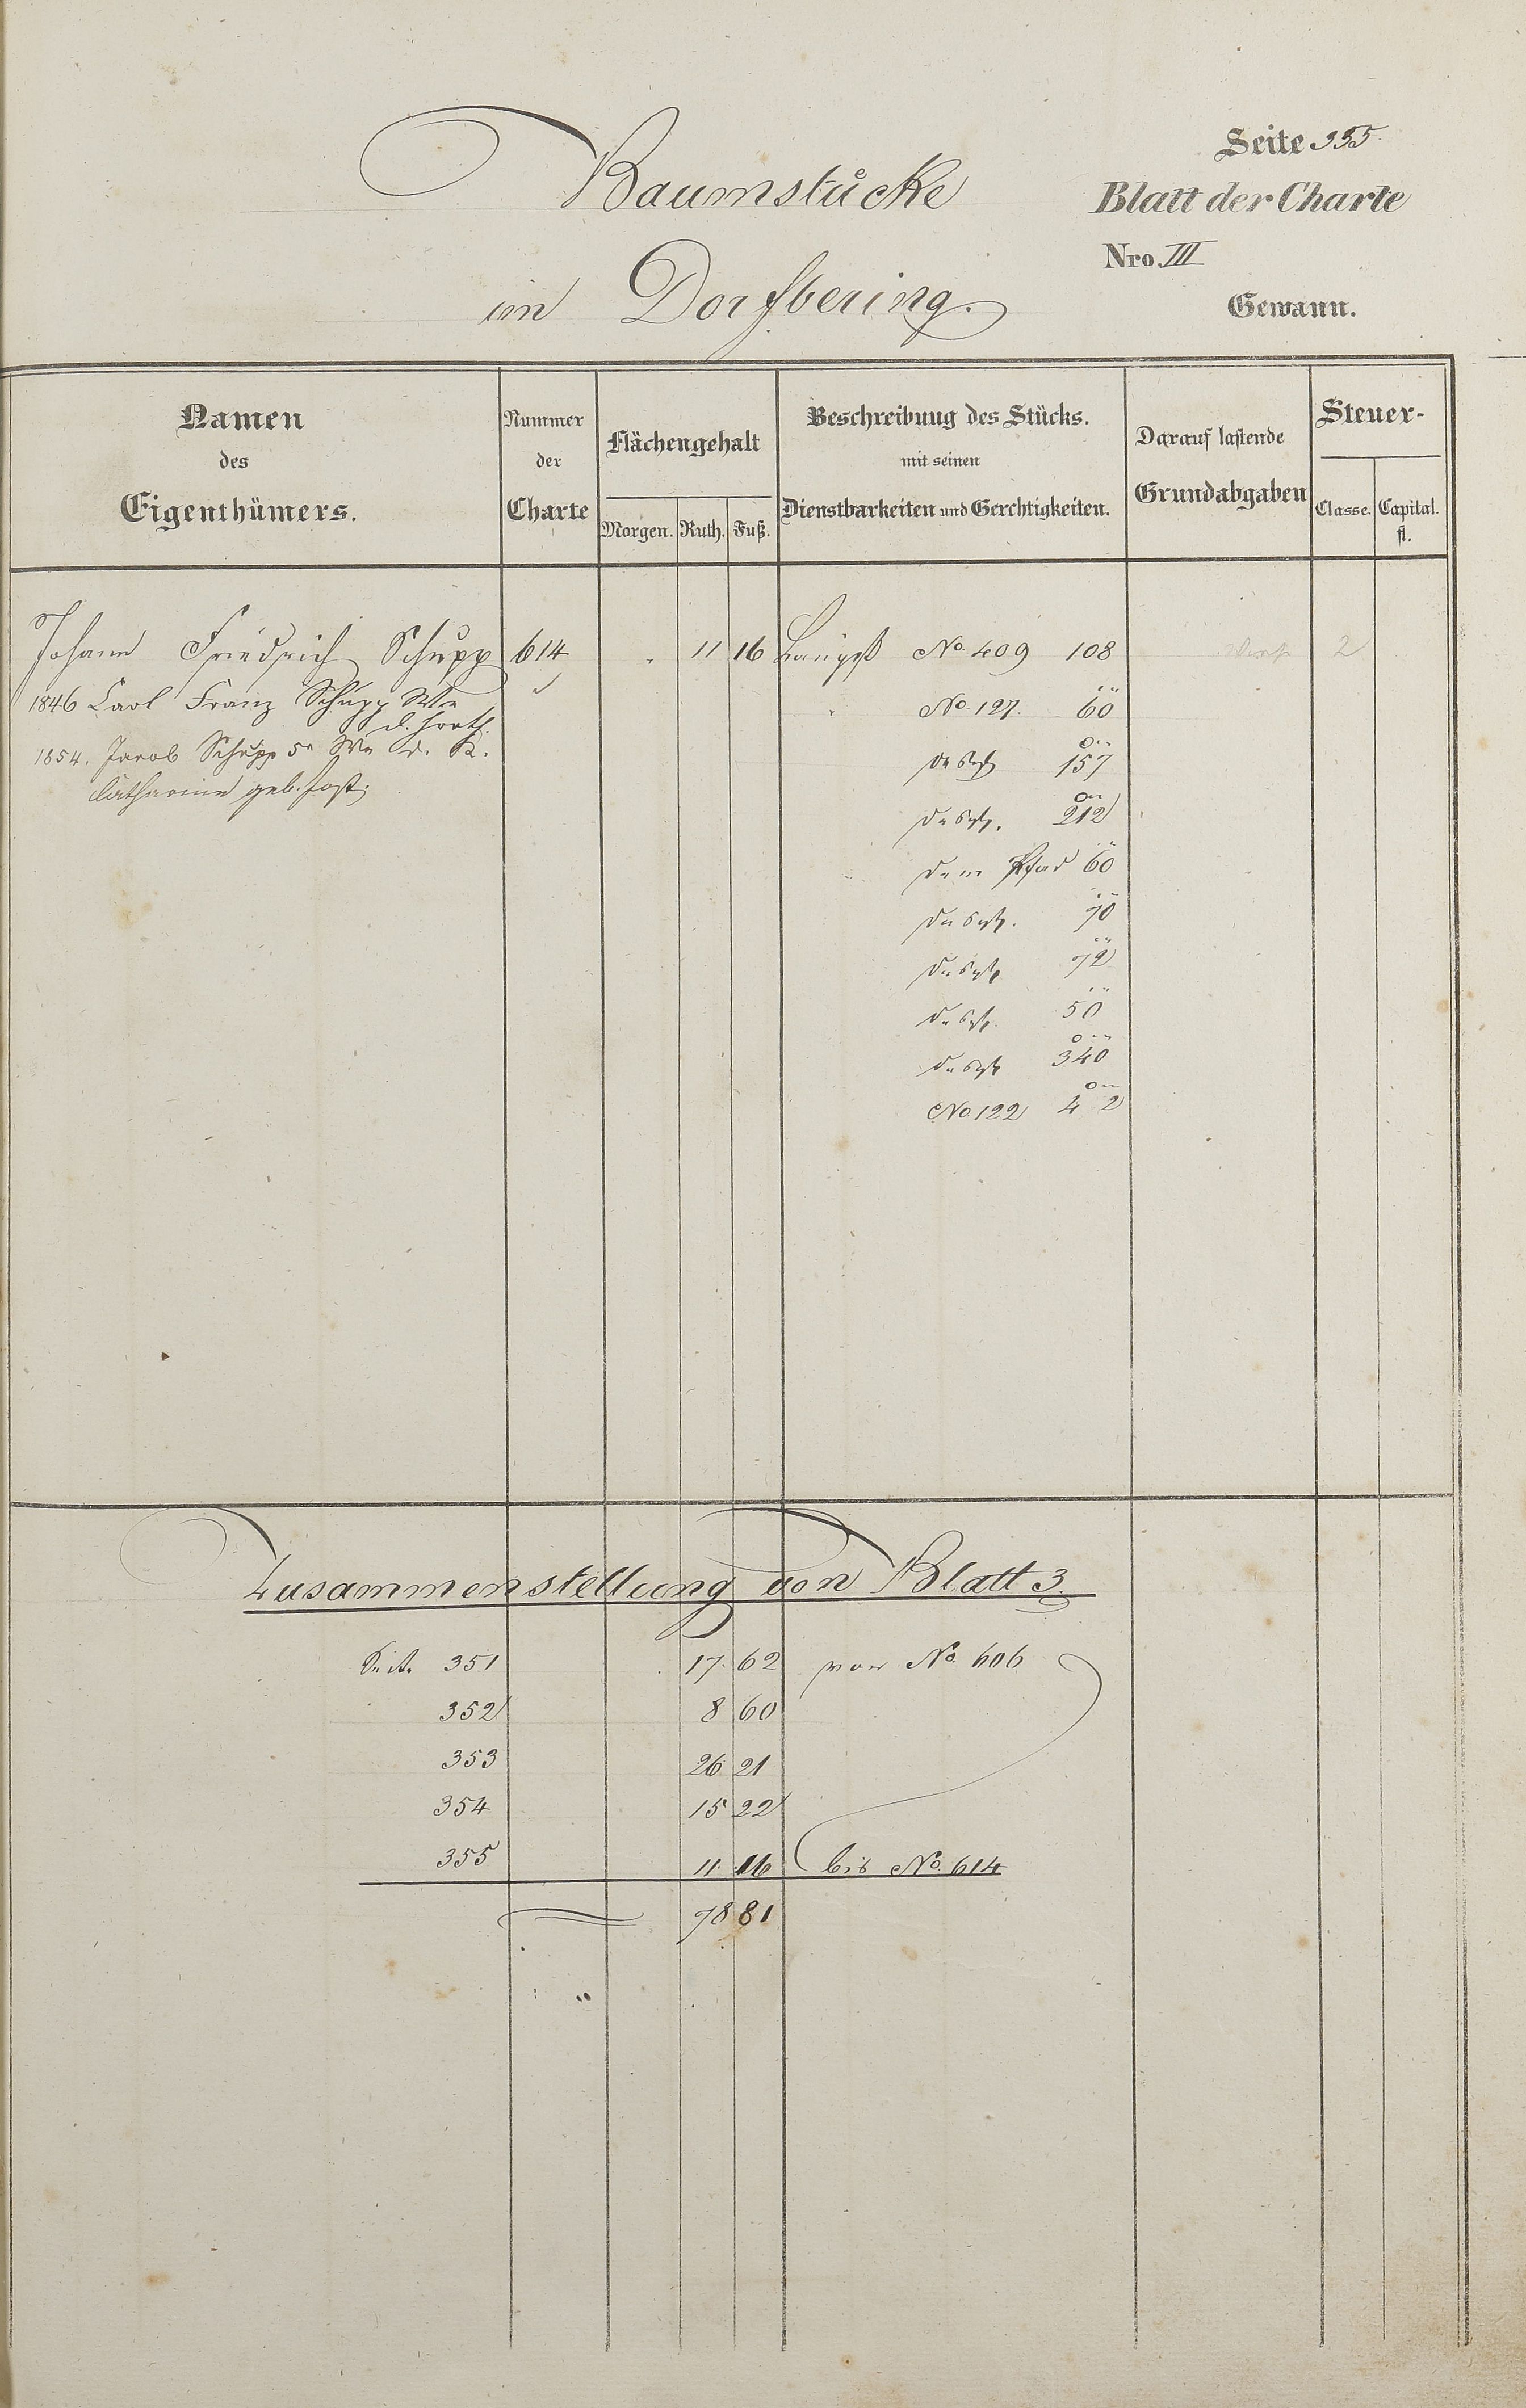 Seite 355.
Baumstücke
Blatt der Charte
Nro III
im Dorfbering.
Gewann.
Namen des Eigenthümers.
Nummer der Charte
Flächengehalt
Morgen. Ruth. Fuß.
Beschreibung des Stücks. mit seinen Dienstbarkeiten und Gerechtigkeiten.
Darauf lastende Grundabgaben
Steuer-
Classe. Capital. fl.
Johann Friedrich Schupp 614 11 16 No. 409 108 2
1846 Carl Franz Schupp We
No. 127. 60
1854. Jacob Schupp 5r We d. K.
desgl. 157
Catharine geb. Jost.
desgl. 212
dem Pfad 60
desgl. 70
desgl. 72
desgl. 50
desgl. 340
No 122 4 2
Zusammenstellung von Blatt 3.
Seite 351 17. 62 von No. 606
352 8 60
353 26 21
354 15 22
355 11. 16 bis No. 614
78 81